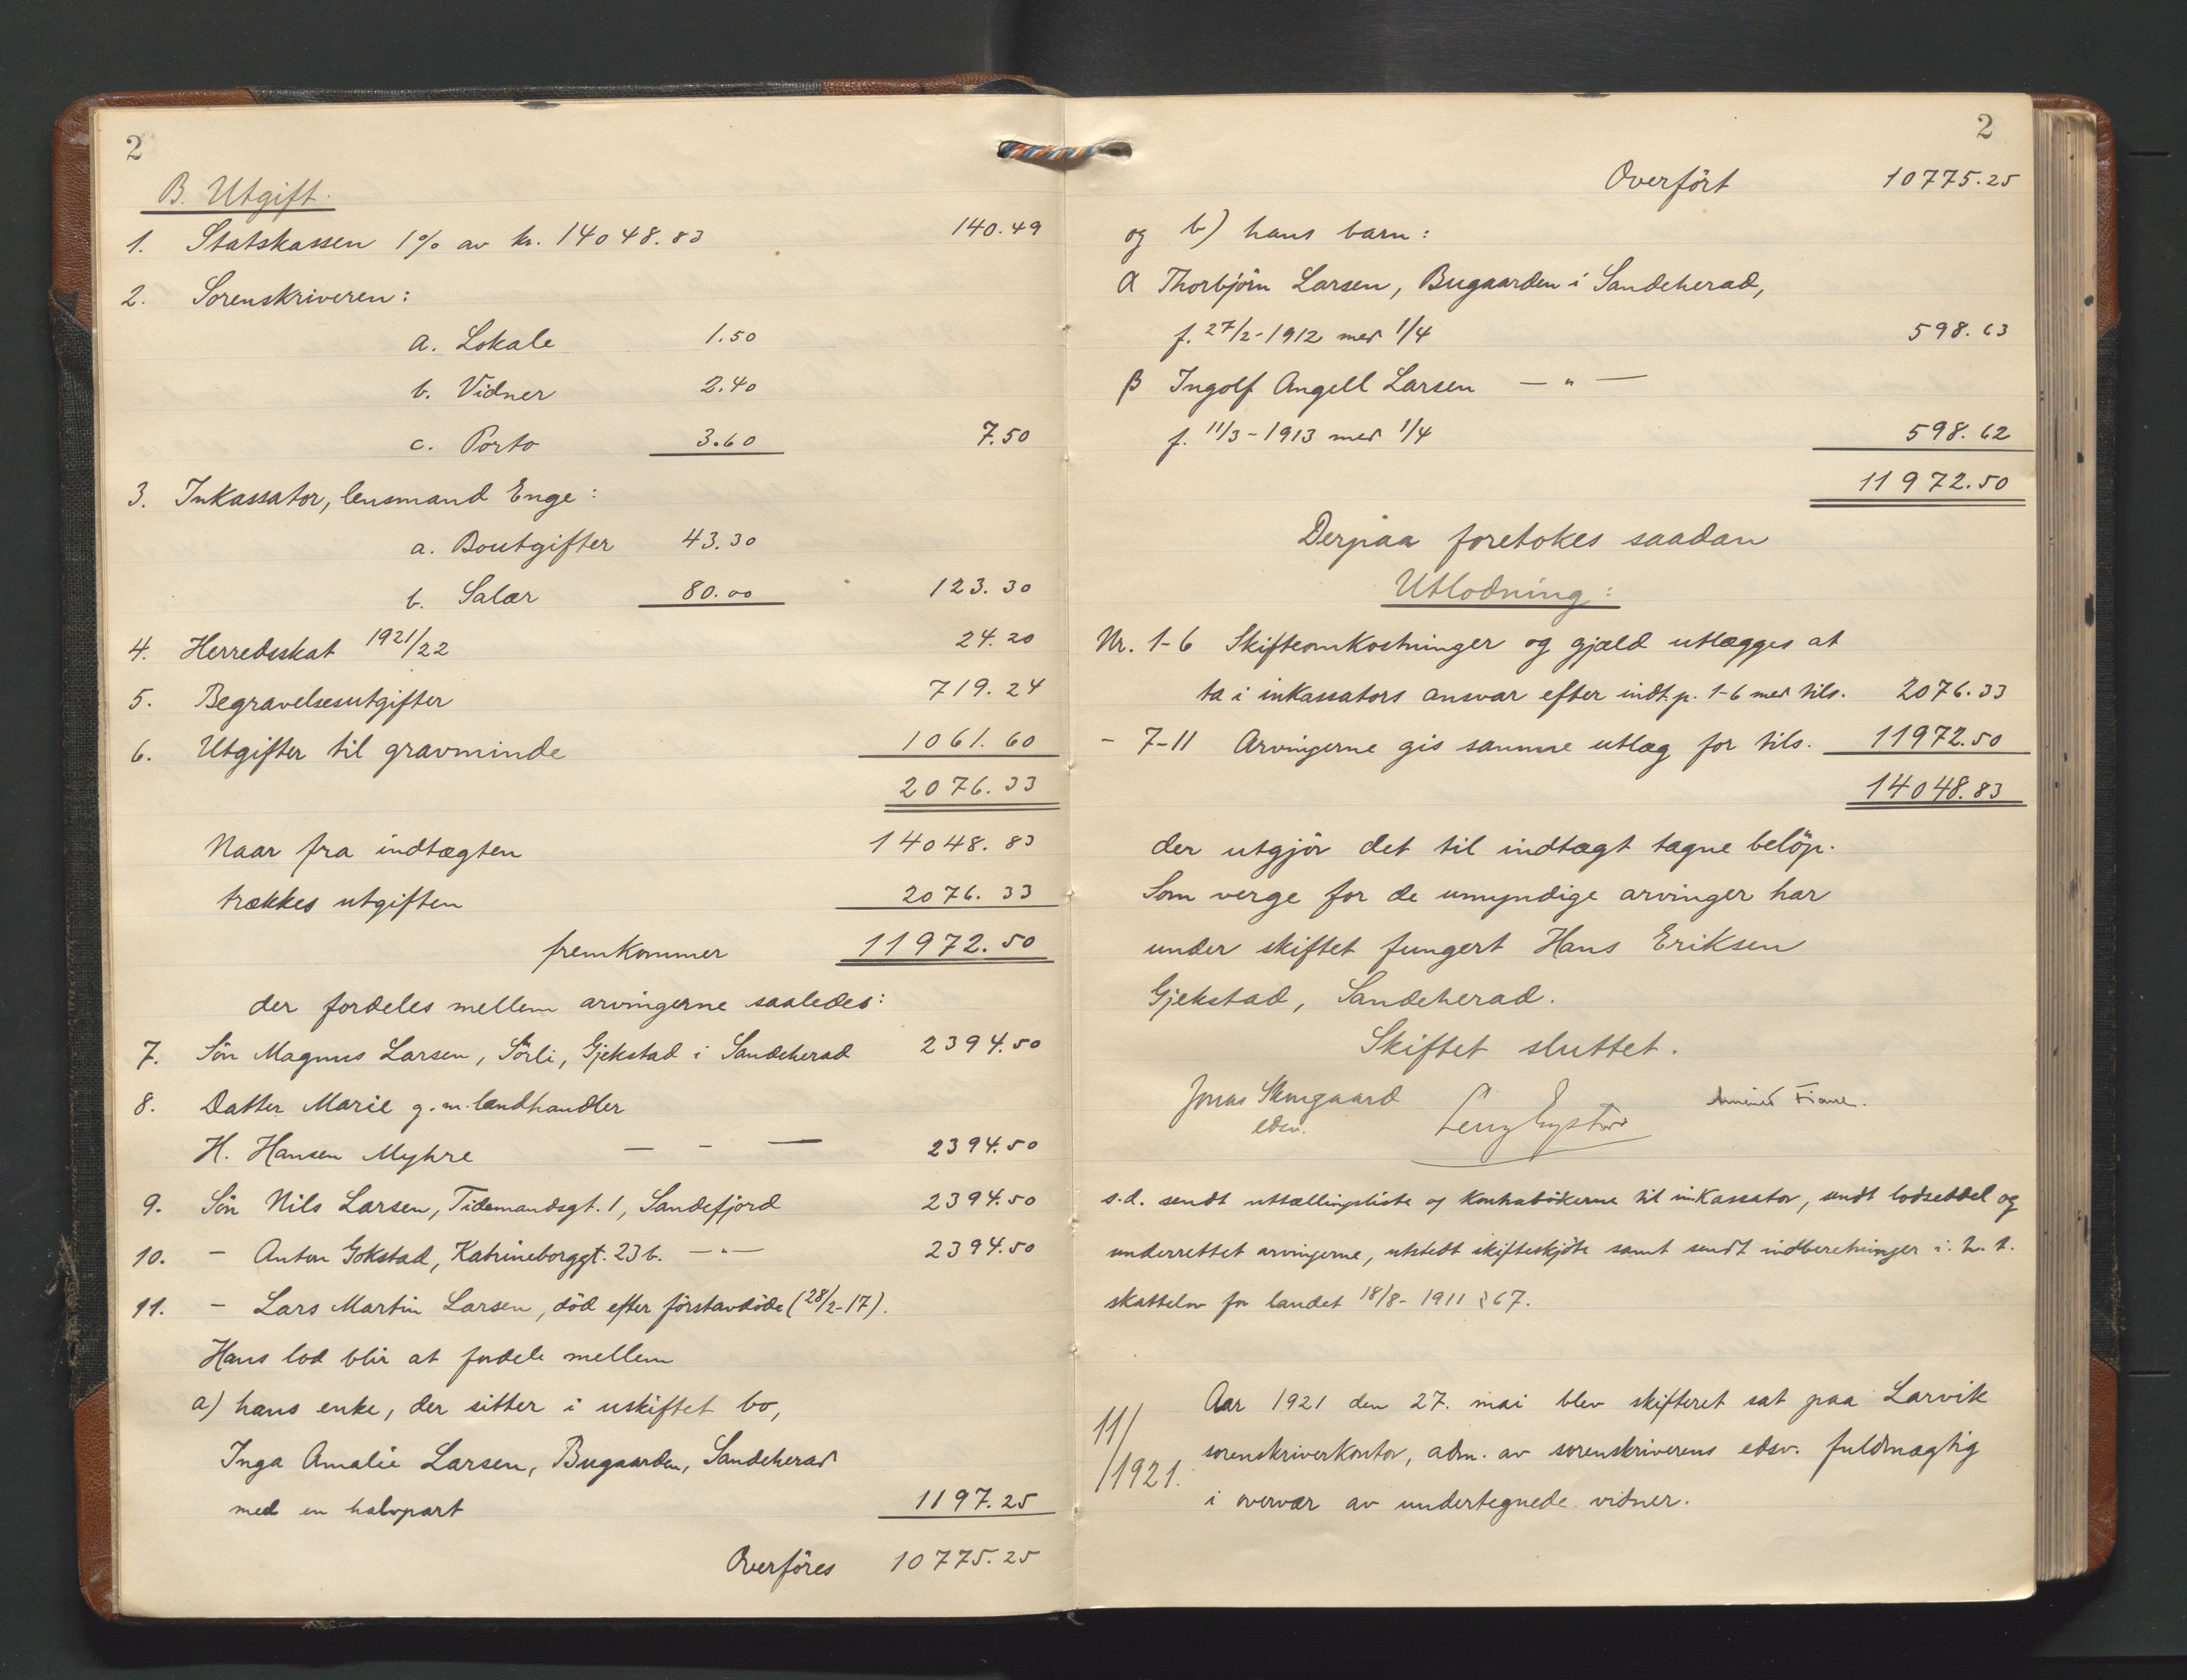 2
B. Utgift.
1. Statskassen 1% av kr. 14048.83 140.49
2. Sorenskriveren:
a. Lokale 1.50
b. Vidner 2.40
c. Porto 3.60 7.50
3. Inkassator, lensmand Enge:
a. Boutgifter 43.30
b. Salær 80.00 123.30
4. Herredsskat 1921/22 24.20
5. Begravelsesutgifter 719.24
6. Utgifter til gravminde 1061.60
2076.33
Naar fra indtægten 14048.83
trækkes utgiften 2076.33
fremkommer 11972.50
der fordeles mellem arvingerne saaledes:
7. Sön Magnus Larsen, Sörli, Gjekstad i Sandeherad 2394.50
8. Datter Marie g.m. landhandler
H. Hansen Myhre — - — 2394.50
9. Sön Nils Larsen, Tidemandsgt. 1, Sandefjord 2394.50
10. - Anton Gokstad, Katrineborggt. 23 b. —"— 2394.50
11. - Lars Martin Larsen, död efter förstavdöde (28/2-17).
Hans lod blir at fordele mellem
a) hans enke, der sitter i uskiftet bo,
Inga Amalie Larsen, Bugaarden, Sandeherad
med en halvpart 1197.25
Overföres 10775.25
2
Overfört 10775.25
og b) hans barn:
α Thorbjörn Larsen, Bugaarden i Sandeherad,
f. 27/2-1912 med 1/4 598.63
β Ingolf Angell Larsen — " —
f. 11/3-1913 med 1/4 598.62
11972.50
Derpaa foretokes saadan
Utlodning:
Nr. 1-6 Skifteomkostninger og gjæld utlægges at
ta i inkassators ansvar efter indt.p. 1-6 med tils. 2076.33
- 7-11 Arvingerne gis samme utlæg for tils. 11972.50
14048.83
der utgjör det til indtægt tagne belöp.
Som verge for de umyndige arvinger har
under skiftet fungert Hans Eriksen
Gjekstad, Sandeherad.
Skiftet sluttet.
Jonas
edsv.
s.d. sendt uttællingsliste og kontrabökerne til inkassator, sendt lodseddel og
underrettet arvingerne, utstedt skifteskjöte samt sendt indberetninger i. h. t.
skattelov for landet 18/8-1911 § 67.
11/
/1921.
Aar 1921 den 27. mai blev skifteret sat paa Larvik
sorenskriverkontor, adm. av sorenskriverens edsv. fuldmægtig
i overvær av undertegnede vidner.